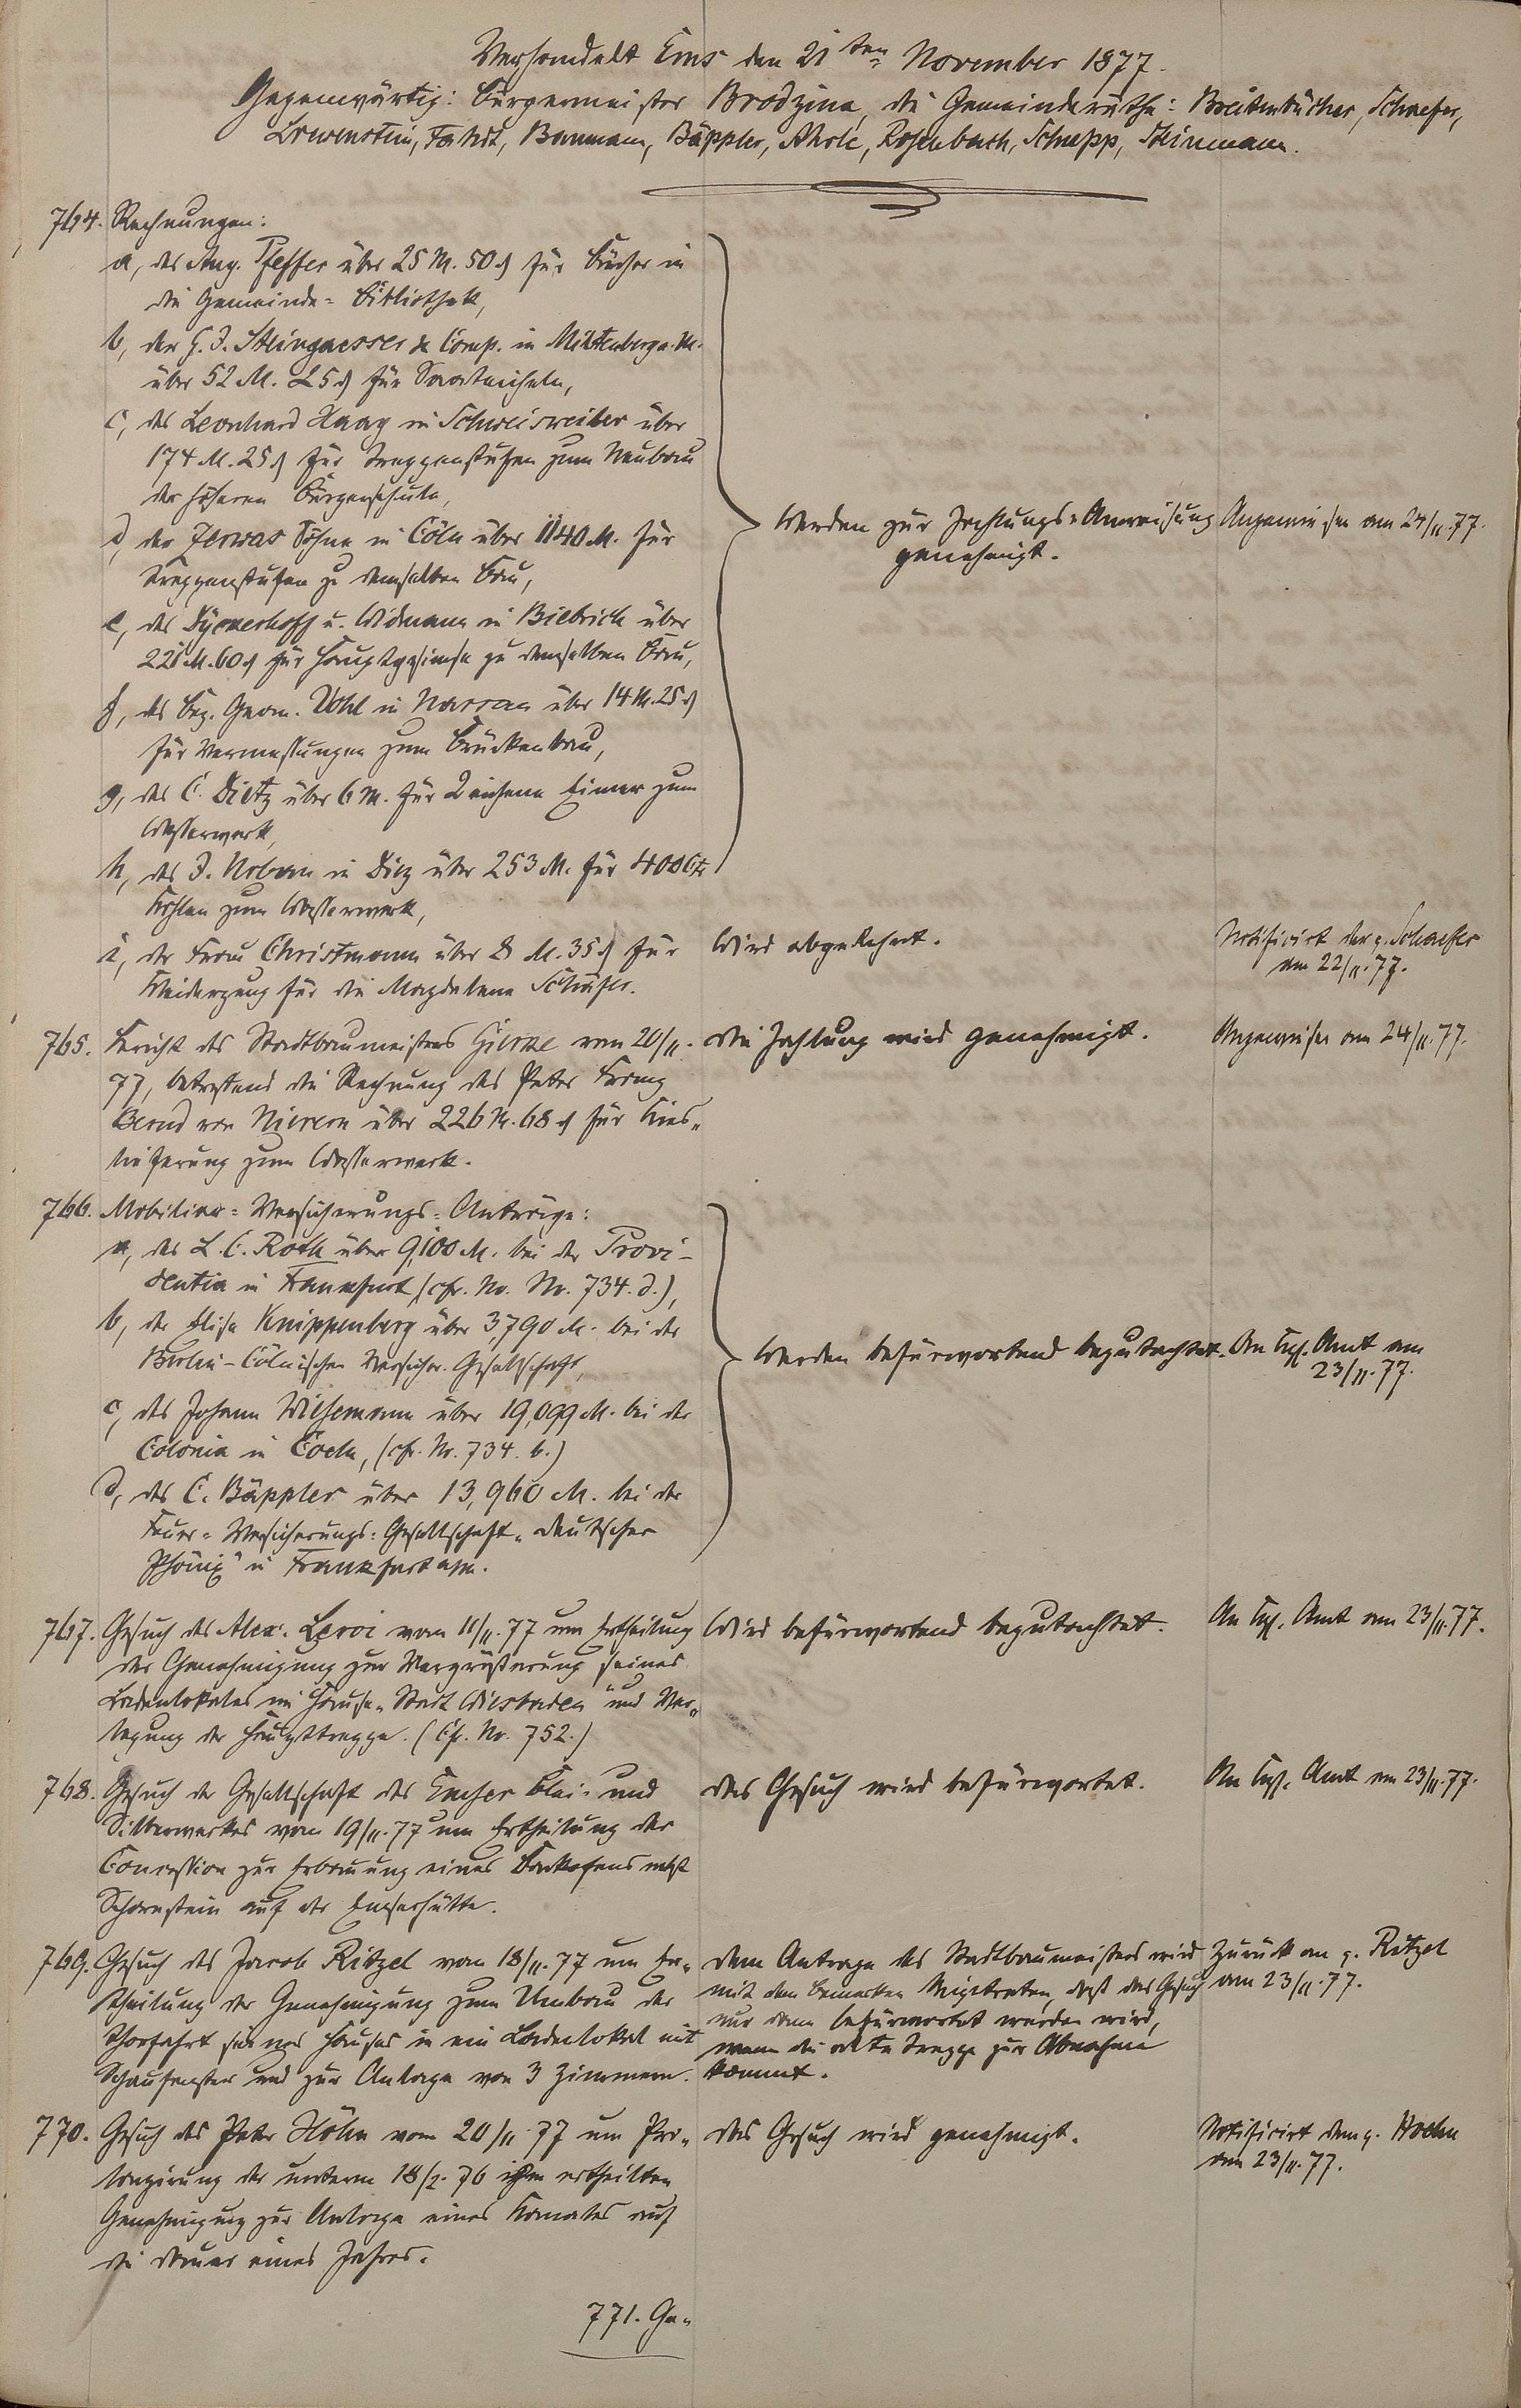 Verhandelt Ems den 21ten November 1877.
Gegenwärtig: Bürgermeister Brodzina, die Gemeinderäthe: Breitenbücher, Schaefer,
Loewenstein, Baumann, Bäppler, Rosenbach, Schupp, Steinmann.
764. Rechnungen:
a, des Aug. Pfeffer über 25 M. 50 ₰ für Bücher in
die Gemeinde-Bibliothek,
b, der G. J. Steingaesser & Comp. in Miltenberg a. M.
über 52 M. 25 ₰ für Saateicheln,
c, des Leonhard Haag in Schweisweiler über
174 M. 25 ₰ für Treppenstufen zum Neubau
der höheren Bürgerschule,
d, der Zervas Söhne in Cöln über 1140 M. für
Treppenstufen zu demselben Bau,
e, des Dyckerhoff u. Widmann in Biebrich über
221 M. 60 ₰ für Hauptgesimse zu demselben Bau,
f, des Bez. Geom. Vohl in Nassau über 14 M. 25 ₰
für Vermessungen zum Brückenbau,
g, des C. Dietz über 6 M. für 2 eichene Eimer zum
Wasserwerk,
h, des J. in Diez über 253 M. für 400 Ctr
Kohlen zum Wasserwerk,
Werden zur Zahlungs-Anweisung
genehmigt.
Angewiesen am 24/11. 77.
i, der Frau Christmann über 8 M. 35 ₰ für
Kleiderzeug für die Magdalena Schäfer.
Wird abgelehnt.
Notificirt der p. Schaefer
am 22/11. 77.
765. Bericht des Stadtbaumeisters vom 20/11.
77, betreffend die Rechnung des Peter Franz
Bernd von Nievern über 226 M. 68 ₰ für Kies-
lieferung zum Wasserwerk.
Die Zahlung wird genehmigt.
Angewiesen am 24/11. 77.
766. Mobiliar-Versicherungs-Anträge:
a, des L. C. Roth über 9,100 M. bei der Provi-
dentia in Frankfurt (cfr. No. Nr. 734. d.),
b, der Elise Knippenberg über 3,790 M. bei der
Berlin-Cölnischen Versicher. Gesellschaft,
c, des Johann Wilhemann über 19,099 M. bei der
Colonia in Coeln, (cfr. Nr. 734. b.)
d, des C. Bäppler über 13,960 M. bei der
Feuer-Versicherungs-Gesellschaft „Deutscher
Phönix" in Frankfurt a/M.
Werden befürwortend begutachtet.
An Kgl. Amt am
23/11. 77.
767. Gesuch des Alex. Leroi vom 11/11. 77 um Ertheilung
der Genehmigung zur Vergrößerung seines
Ladenlokales im Hause „Stadt Wiesbaden" und Ver-
legung der Haupttreppe. (Cfr. Nr. 752.)
Wird befürwortend begutachtet.
An Kgl. Amt am 23/11. 77.
768. Gesuch der Gesellschaft des Emser Blei- und
Silberwerkes vom 19/11. 77 um Ertheilung der
Concession zur Erbauung eines Backofens nebst
Schornstein auf der Emserhütte.
Das Gesuch wird befürwortet.
An Kgl. Amt am 23/11. 77.
769. Gesuch des Jacob Ritzel vom 18/11. 77 um Er-
theilung der Genehmigung zum Umbau der
Thorfahrt seines Hauses in ein Ladenlokal mit
Schaufenster und zur Anlage von 3 Zimmern.
Dem Antrage des Stadtbaumeisters wird
mit dem Bemerken beigetreten, daß das Gesuch
nur dann befürwortet werden wird,
wenn die alte Treppe zur Abnahme
kommt.
Zurück an p. Ritzel
am 23/11. 77.
770. Gesuch des Peter Höhn vom 20/11. 77 um Pro-
longirung der unterm 18/2. 76 ihm ertheilten
Genehmigung zur Anlage eines Kanales auf
die Dauer eines Jahres.
Das Gesuch wird genehmigt.
Notificirt dem p. Hoehn
am 23/11. 77.
771. Ge-